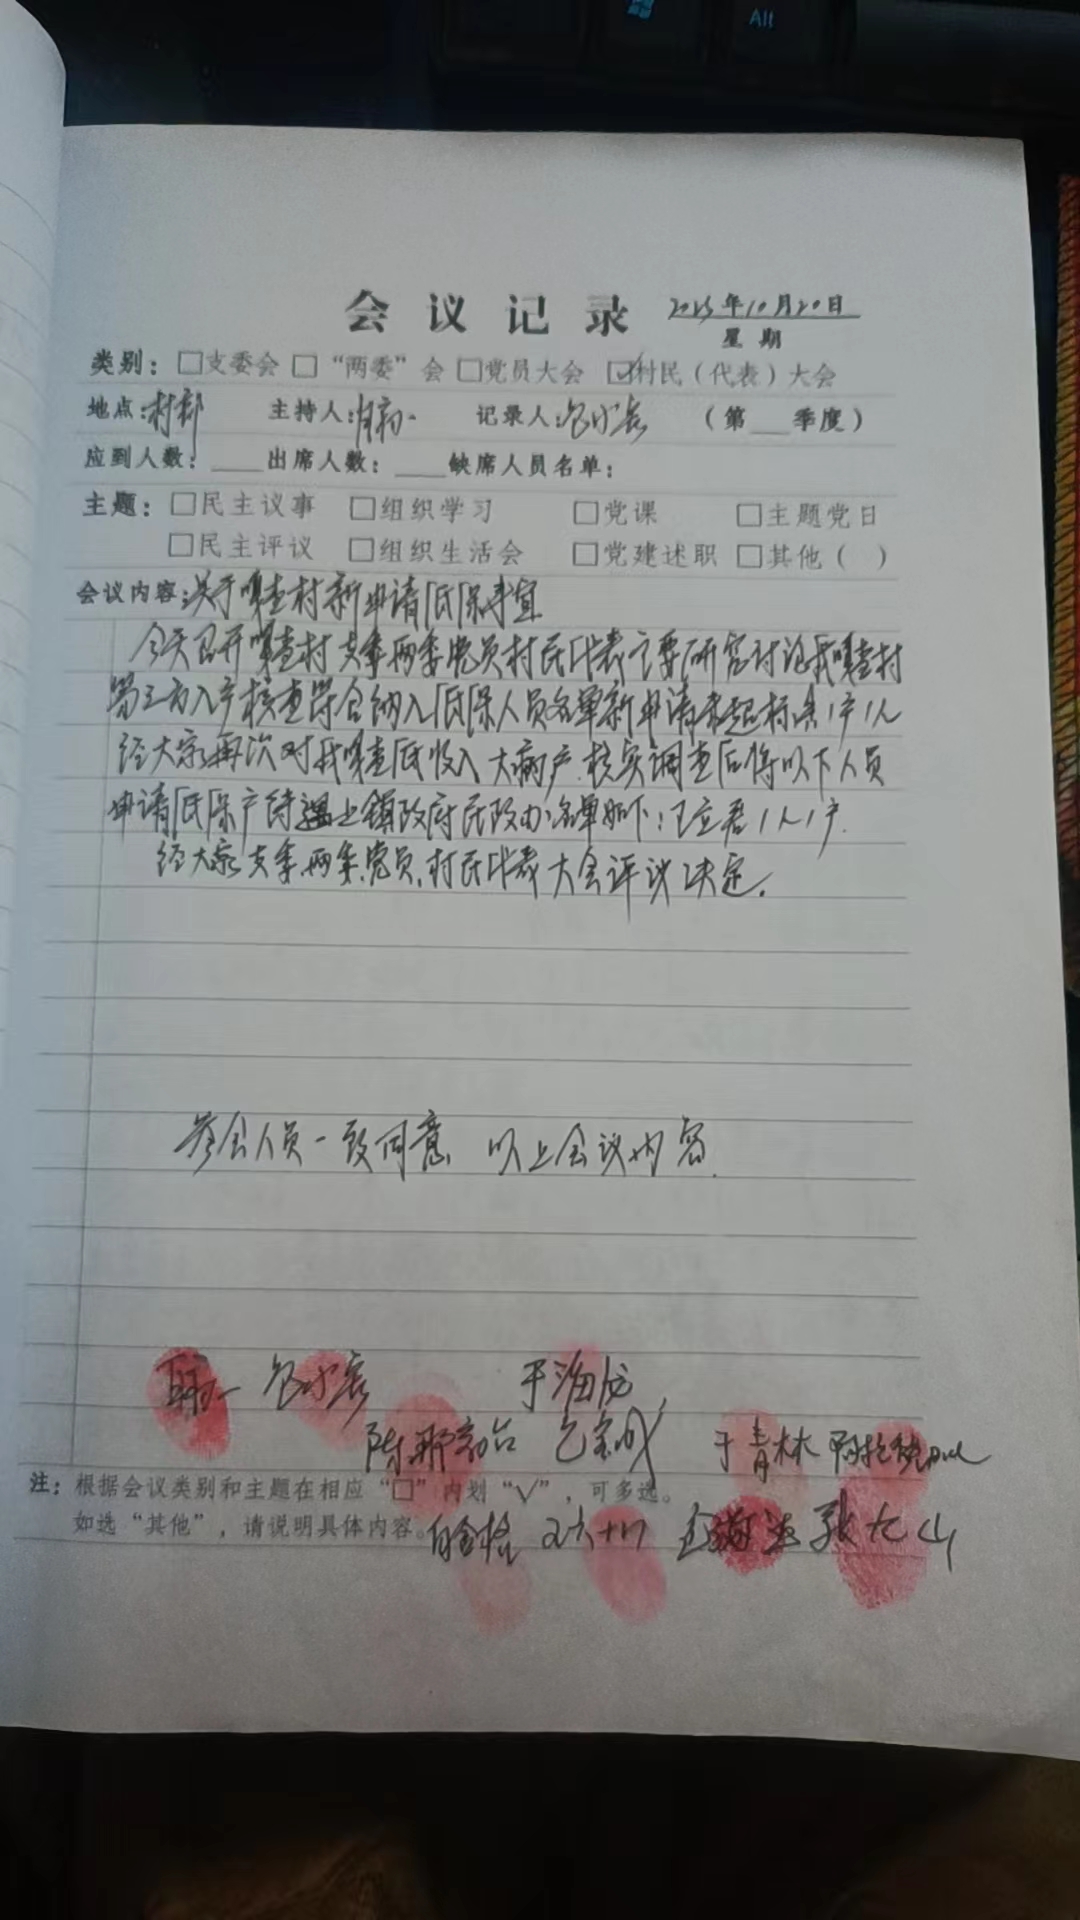 Alt
会议记录 2025年10月20日
星期
类别：□支委会 □“两委”会 □党员大会 ☑村民（代表）大会
地点：村部 主持人： 记录人：包 （第__季度）
应到人数：____出席人数：____缺席人员名单：
主题：□民主议事 □组织学习 □党课 □主题党日
□民主评议 □组织生活会 □党建述职 □其他（ ）
会议内容：关于嘎查村新申请低保事宜
今天召开嘎查村支委两委党员村民代表主要研究讨论我嘎查村
第三方入户核查符合纳入低保人员名单新申请 1户1人
经大家再次对我嘎查低收入大病户.核实调查后将以下人员
申请低保户待遇上镇政府民政办.名单如下：王立君1人1户.
经大家支委.两委.党员.村民代表大会评议决定.
参会人员一致同意 以上会议内容.
包 于海
陈那 包宝成 于青林
注：根据会议类别和主题在相应“□”内划“√”，可多选。
如选“其他”，请说明具体内容。
白金 张七山